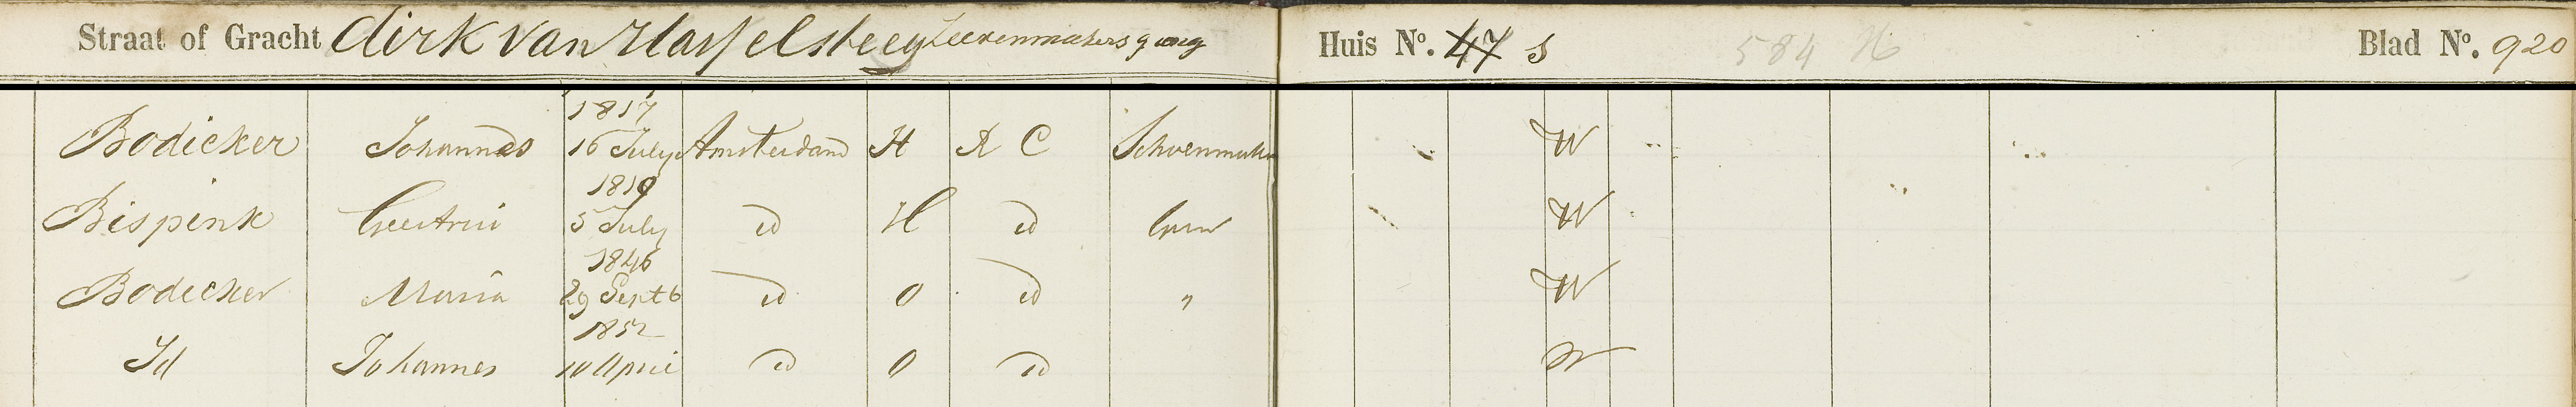 Straat of Gracht Dirk van Hasselsteeg Leertenmakersgang Huis No. 47 S 584 H Blad No. 920
1817
Bodicker Johannes 16 July Amsterdam H R C Schoenmaker W
1819
Bispink Geertrui 5 July id H id W
1846
Bodicker Maria 29 Septb id O id " W
1852
Id Johannes 10 April id O id W